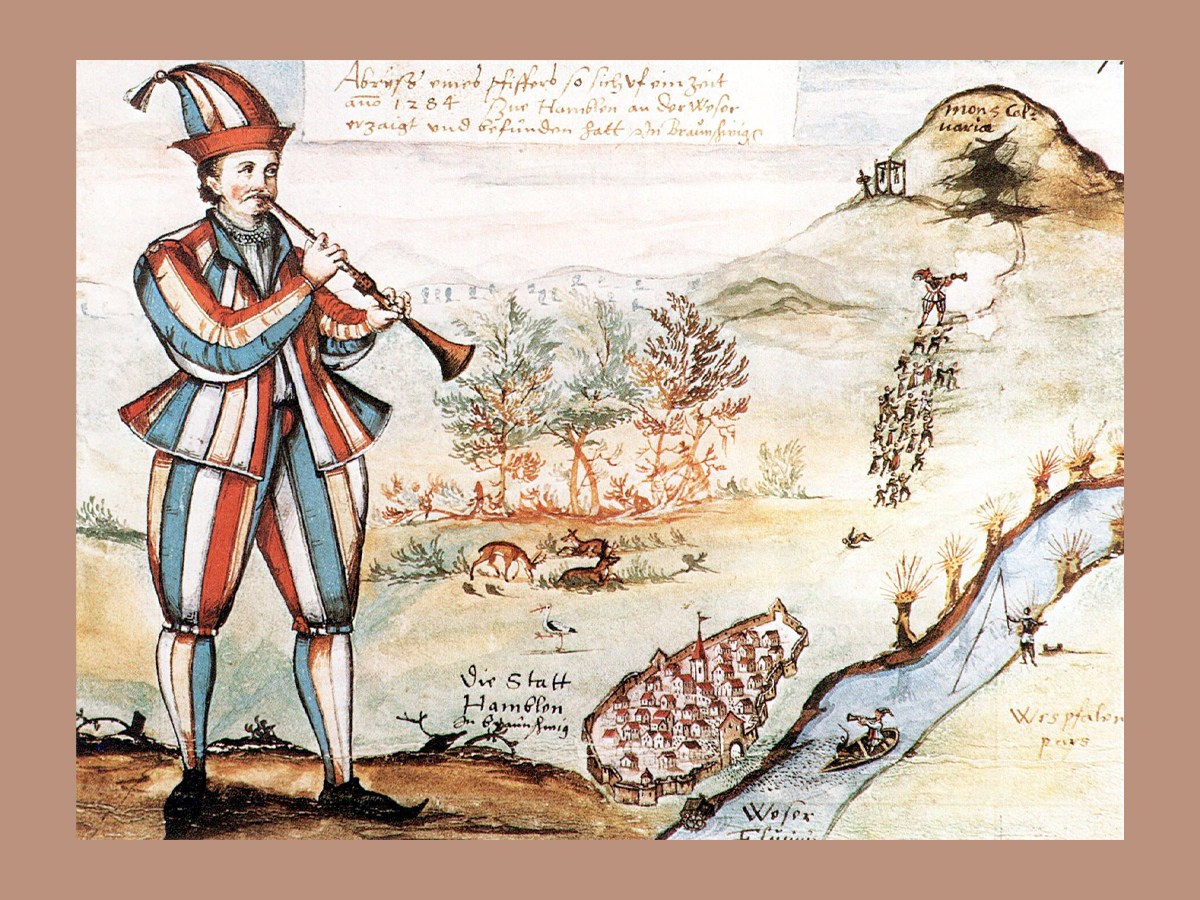 Abryss eines pfiffers so sich vf ein Zeit
ano 1284 Zue Hamblen an der Weser
erzaigt und befunden hatt In Braunschwig
Mons Cal-
variæ
Die Statt
Hamblen
In braunschwig
Wespfalen
pars
Weser